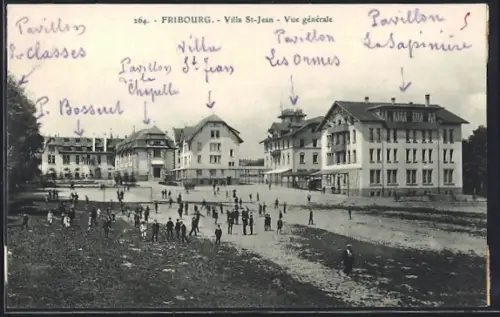 264. - FRIBOURG. - Villa St-Jean - Vue générale
Pavillon
Classes
P. Bossuet
Pavillon
La
Chapelle
Villa
St Jean
Pavillon
Les Ormes
Pavillon
La Sapinière